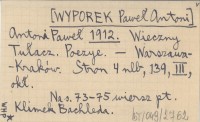 [WYPOREK Paweł Antoni]
Antoni Paweł 1912. Wieczny
Tułacz. Poezye. — Warszawa
-Kraków. Stron 4 nlb, 139, III,
okł.
Na s. 73-75 wiersz pt.
Klimek Bachleda.